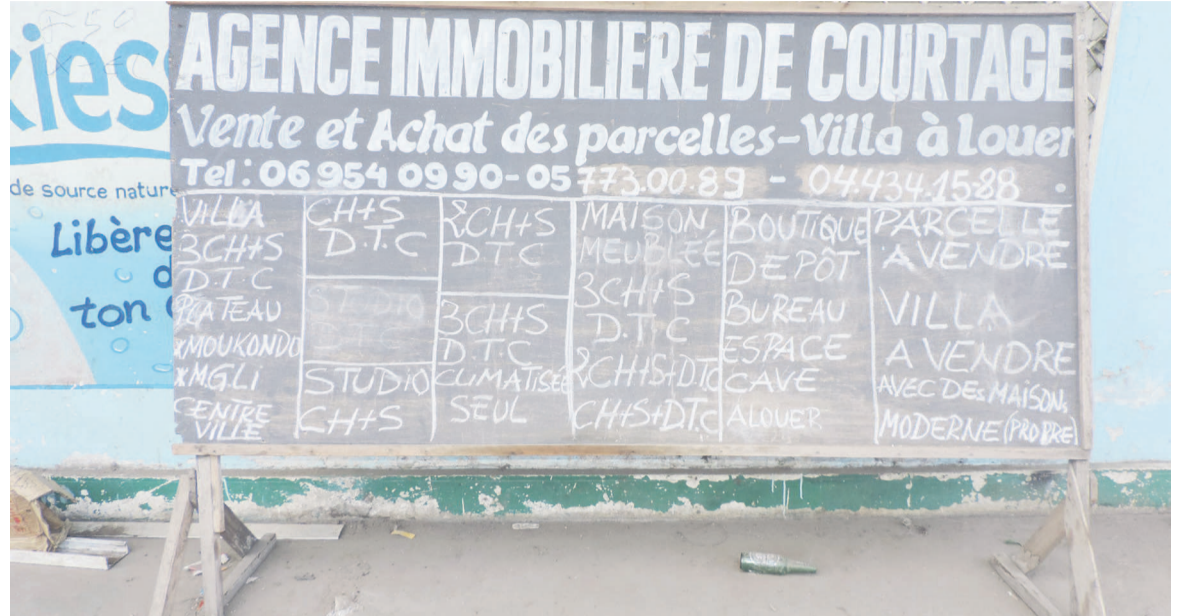 AGENCE IMMOBILIERE DE COURTAGE
Vente et Achat des parcelles-Villa à Louer
Tel: 06 954 09 90-05 773.00.89 - 04.434.15-88.
VILLA
3CH+S
D.T.C
PLATEAU
xMOUKONDO
xM.G.LI
CENTRE
VILLE
CH+S
D.T.C
STUDIO
DTC
STUDIO
CH+S
2CH+S
DTC
3CH+S
D.T.C
CLIMATISÉE
SEUL
MAISON,
MEUBLÉE
3CH+S
D.T.C
2CH+S+DTC
CH+S+D.T.C
BOUTIQUE
DEPÔT
BUREAU
ESPACE
CAVE
ALOUER
PARCELLE
A VENDRE
VILLA
A VENDRE
AVEC DES MAISON,
MODERNE (PROPRE)
kies
de source nature
Libère
d
ton